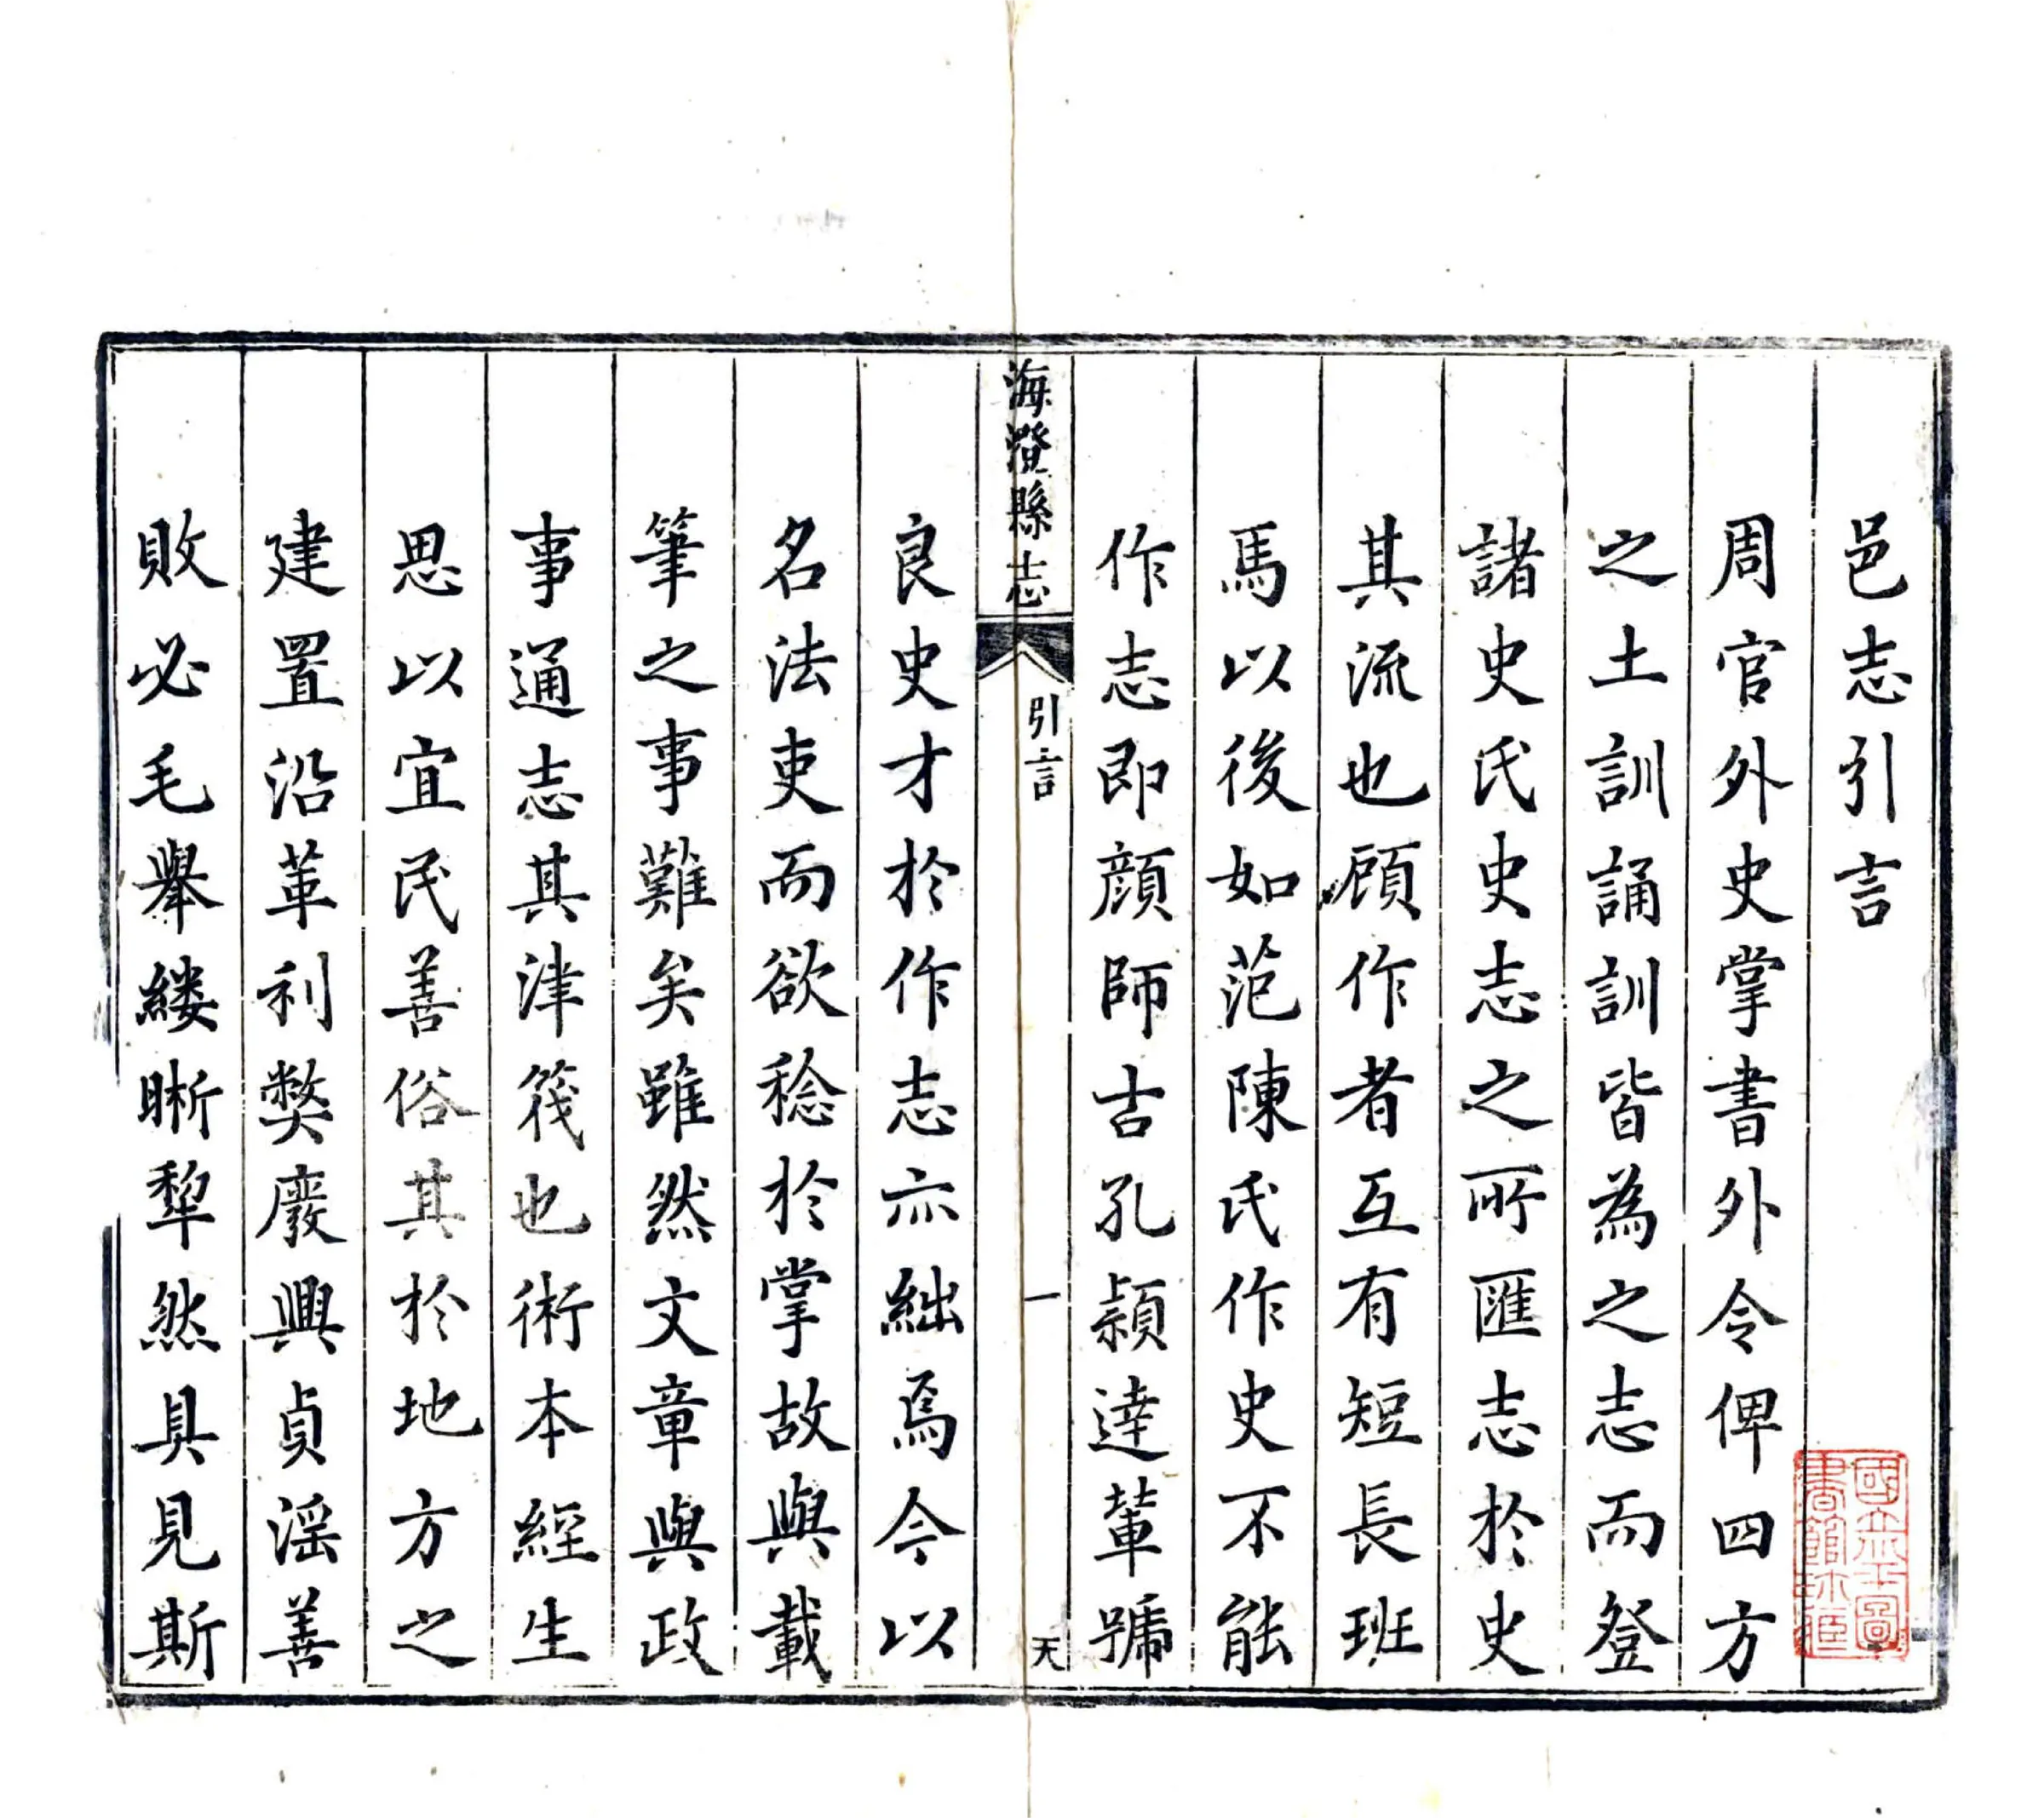 邑志引言
周官外史掌書外令俾四方
之土訓誦訓皆為之志而登
諸史氏史志之所匯志於史
其流也顧作者互有短長班
馬以後如范陳氏作史不能
作志即顔師古孔頴達軰號
海澄縣志
引言
一
天
良史才於作志亦絀焉今以
名法吏而欲稔於掌故與載
筆之事難矣雖然文章與政
事通志其津筏也術本經生
思以宜民善俗其於地方之
建置沿革利弊廢興貞淫善
敗必毛舉縷晰犂然具見斯
國立圖
書館珍藏